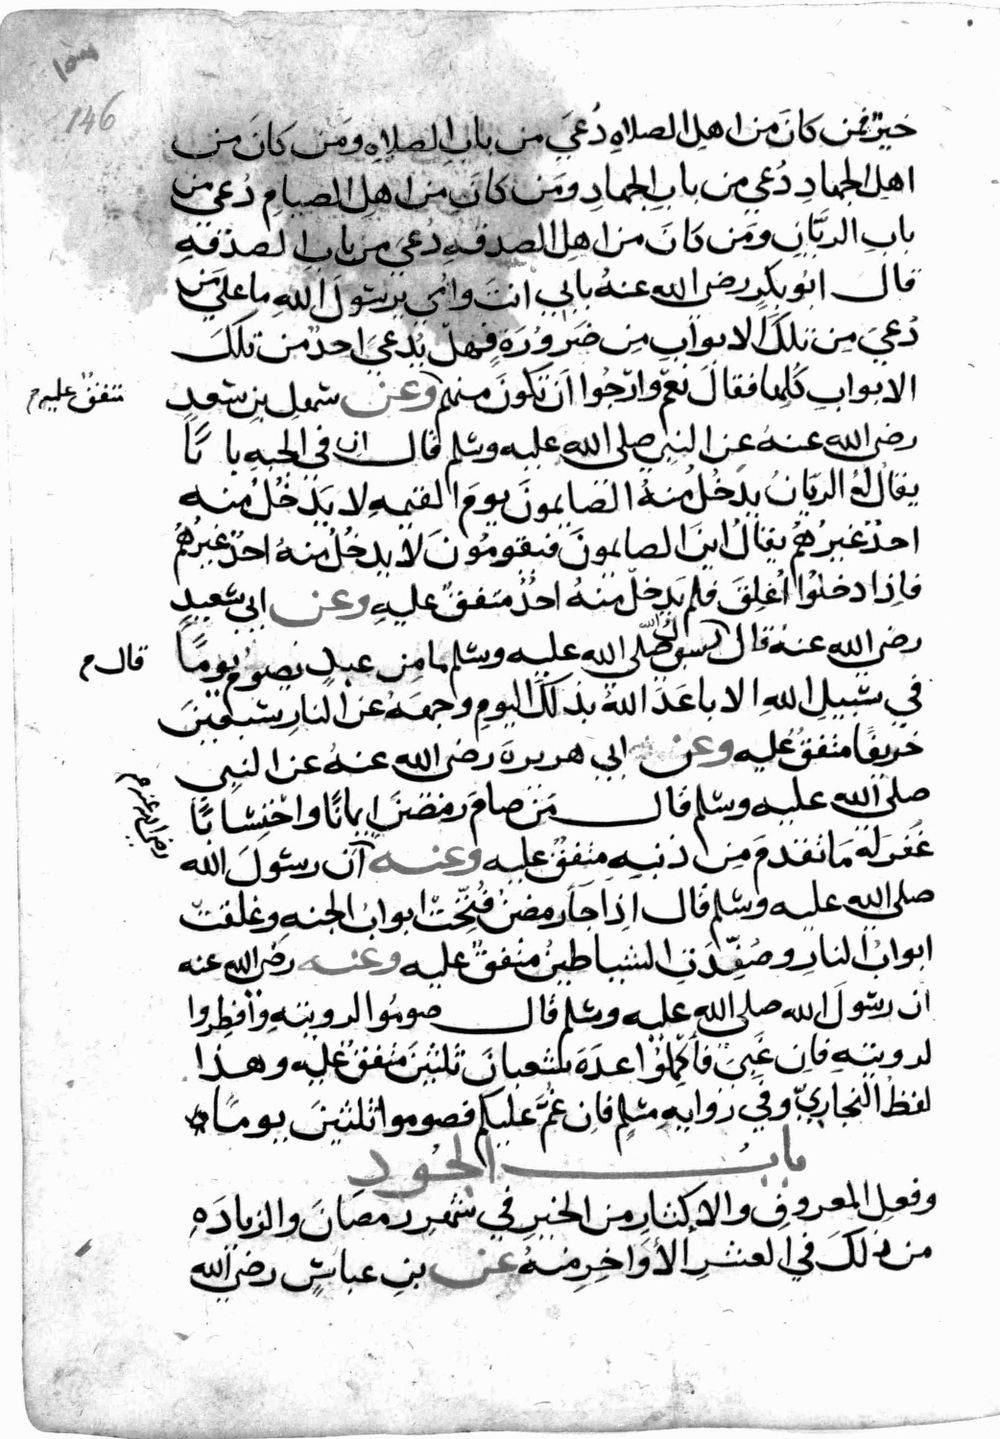 146
خير فمن كان من اهل الصلاه دُعي من باب الصلاه ومن كان من
اهل الجهاد دُعي من باب الجهاد ومن كان من اهل الصيام دُعي من
باب الريّان ومن كان من اهل الصدقه دُعي من باب الصدقه
قال ابو بكر رضي الله عنه بابي انت وامي يرسول الله ما على من
دُعي من تلك الابواب من ضرورة فهل يُدعى احد من تلك
الابواب كلها فقال نعم وارجوا ان تكون منهم وعن سهل بن سعد
متفق عليه م
رضي الله عنه عن النبي صلى الله عليه وسلم قال ان في الجنه بابًا
يقال له الريّان يدخُل منه الصايمون يوم القيمه لا يدخُل منه
احدٌ غيرُهم يقالُ اين الصايمون فيقومون لا يدخل منه احد غيرهم
فاذا دخلوا اُغلق فلم يدخل منه احدٌ متفق عليه وعن ابي سعيد
رضي الله عنه قال رسول الله صلى الله عليه وسلم ما من عبد يصوم يومًا
قال م
في سبيل الله الا باعد الله بذلك اليوم وجهه عن النار سبعين
خريفًا متفق عليه وعن ابي هريرة رضي الله عنه عن النبي
صلى الله عليه وسلم قال من صام رمضن ايمانًا واحتسابًا
رضي الله عنه م
غفر له ما تقدم من ذنبه متفق عليه وعنه ان رسول الله
صلى الله عليه وسلم قال اذا جا رمضن فُتّحت ابواب الجنه وغلقت
ابواب النار وصُفّدت الشياطين متفق عليه وعنه رضي الله عنه
ان رسول الله صلى الله عليه وسلم قال صوموا لرويته وافطروا
لرويته فان غبي فاكملوا عدة شعبان ثلثين متفق عليه وهذا
لفظ البخاري وفي روايه مسلم فان غمّ عليكم فصوموا ثلثين يومًا
باب الجُود
وفعل المعروف والاكثار من الخير في شهر رمضان والزياده
من ذلك في العشر الأواخر منه عن بن عباس رضي الله